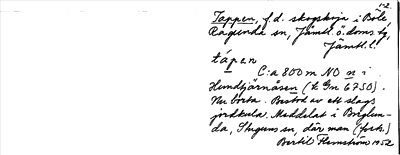 1-2.
Tappen, f.d. skogskoja i Böle,
Ragunda sn, Jämtl. ö. doms. tg,
Jämtl. l.
tápen
C:a 800 m NO n i
Hundtjärnåsen (t. Gn 6750).
Nu borta. Bestod av ett slags
jordkula. Meddelat i Borglun-
da, Stuguns sn, där man (forts.)
Bertil Flemström 1952